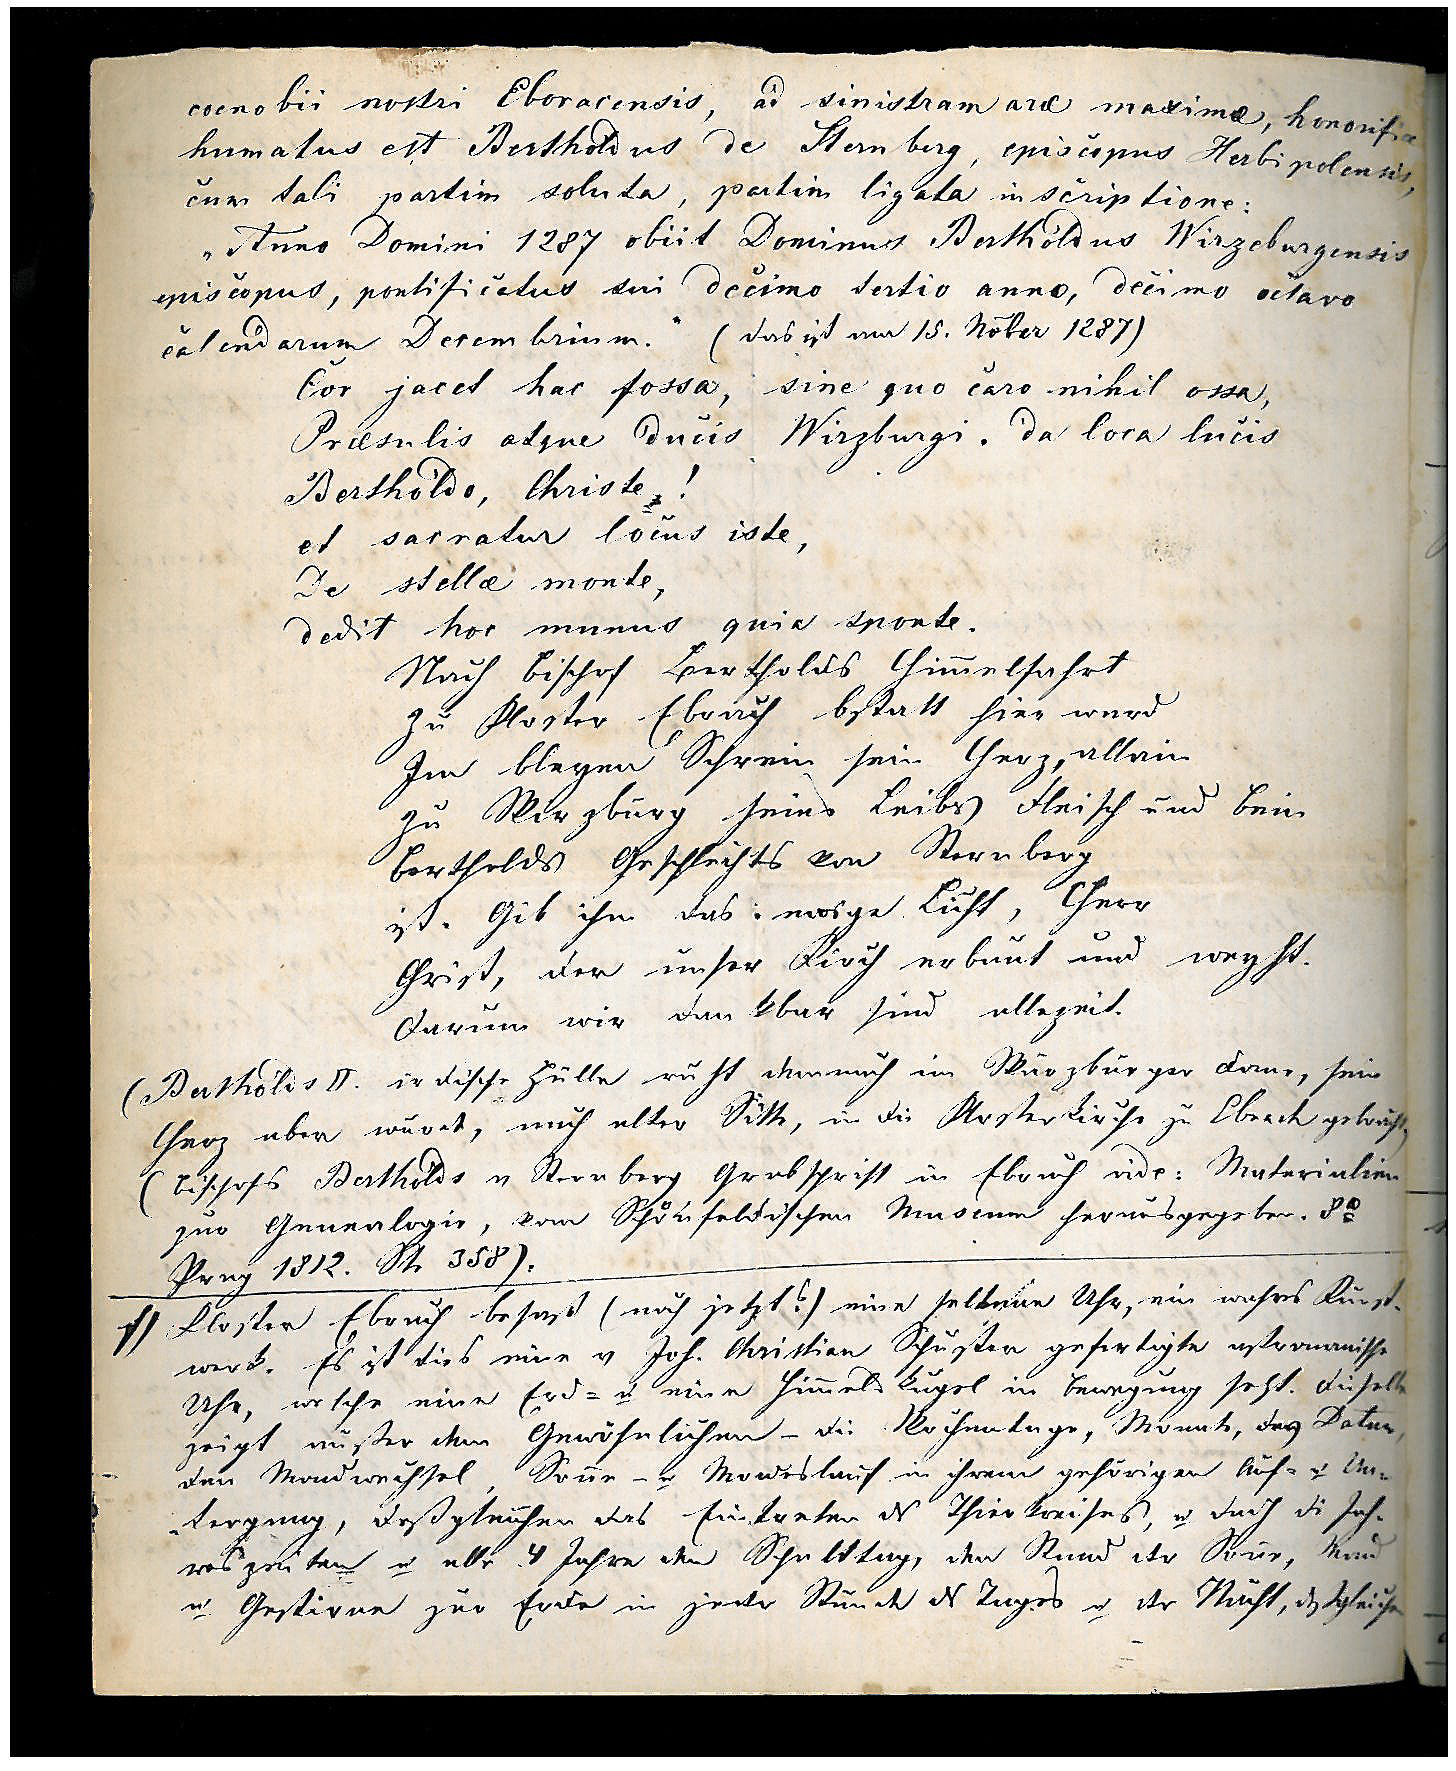 coenobii nostri Eboracensis, ad sinistram aræ maximæ, honorifice
humatus est Bertholdus de Sternberg, episcopus Herbipolensis,
cum tali partim soluta, partim ligata inscriptione:
„Anno Domini 1287 obiit Dominus Bertholdus Wirzeburgensis
episcopus, pontificatus sui decimo tertio anno, decimo octavo
calendarum Decembrium.“ (das ist am 15. Nober 1287)
Cor jacet hac fossa, sine quo caro nihil ossa,
Præsulis atque ducis Wirzburgi. da loca lucis
Bertholdo, Christe,!
et sacratur locus iste,
De stellæ monte,
dedit hoc munus quia sponte.
Nach Bischof Bertholds Himmelfahrt
Zu Kloster Ebrach bstatt hier ward
Im bleyen Schrein sein Herz, allein
zu Wirzburg seines Leibs Fleisch und Bein
Bertholds Geschlechts von Sternberg
ist. Gib ihm das ewge Licht, Herr
Christ, der unser Kirch erbaut und weyht.
darum wir dankbar sind allezeit.
(Bertholds II. irdische Hülle ruht demnach im Würzburger Dome, sein
Herz aber wurde, nach alter Sitte, in die Klosterkirche zu Ebrach gebracht,
(Bischofs Bertholds v Sternberg Grabschrift in Ebrach vide: Materialien
zur Genealogie, vom Schönfeldischen Museum herausgegeben. 8º
Prag 1812. St. 358).
f) Kloster Ebrach besaß (noch jetzt?) eine seltene Uhr, ein wahres Kunst-
werk. Es ist dies eine v Joh. Christian Schuster gefertigte astronomische
Uhr, welche eine Erd= u eine Himmelskugel in Bewegung setzt. dieselbe
zeigt außer dem Gewöhnlichen – die Wochentage, Monate, das Datum,
den Mondwechsel, Sonne – u Mondeslauf in ihrem gehörigen Auf= u Un-
tergang, deßgleichen das Eintreten ds Thierkreises, u dach di Jah-
reszeiten u alle 4 Jahre den Schalttag, den Stand der Sonne, Mond
u Gestirne zur Erde in jeder Stunde ds Tages u der Nacht, desgleichen